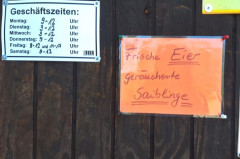 Geschäftszeiten:
Montag: 9-12 Uhr
Dienstag: 9-12 Uhr
Mittwoch: 9-12 Uhr
Donnerstag: 9-12 Uhr
Freitag: 9-12 Uhr
Samstag: 9-12 Uhr
Frische Eier
geräucherte
Saiblinge